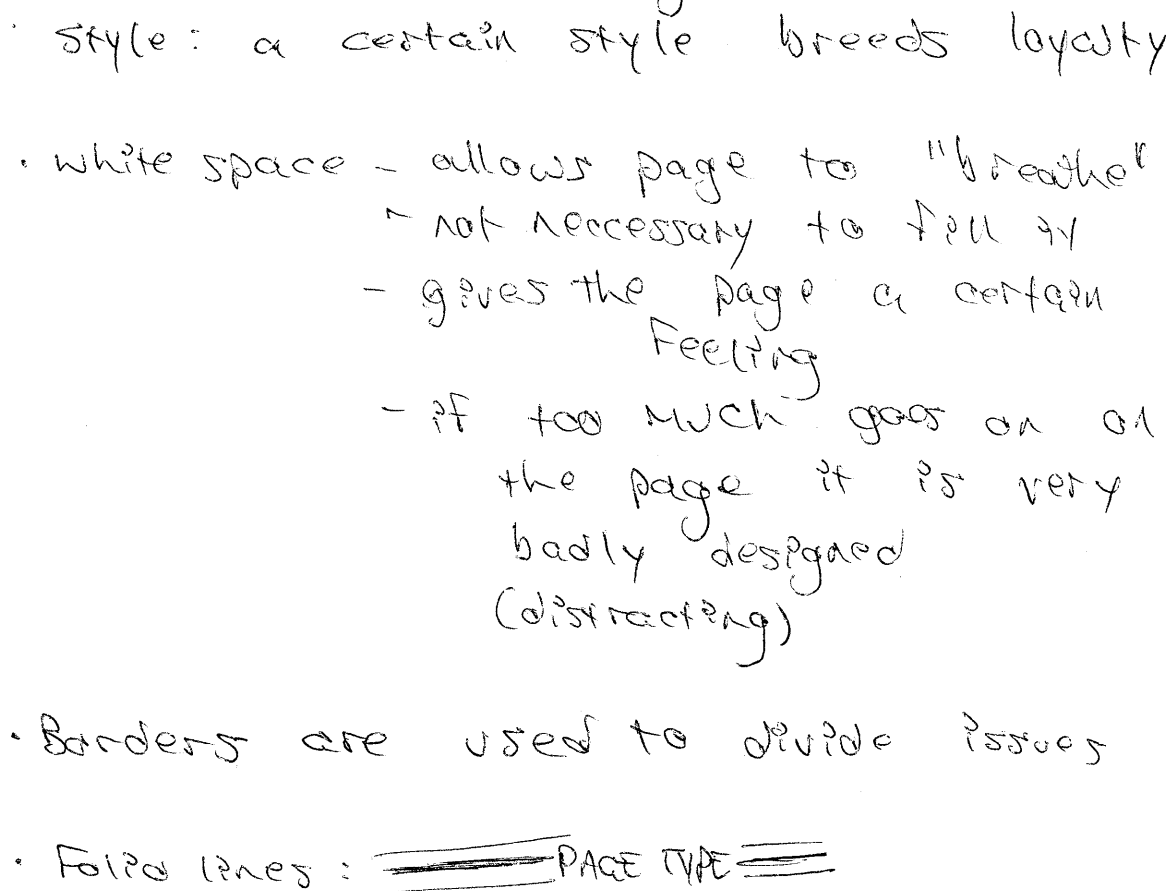 · style: a certain style breeds loyalty
· white space - allows page to "breathe"
- not neccessary to fill it
- gives the page a certain
Feeling
- if too much goes on on
the page it is very
badly designed
(distracting)
· Borders are used to divide issues
· Folio lines: PAGE TYPE